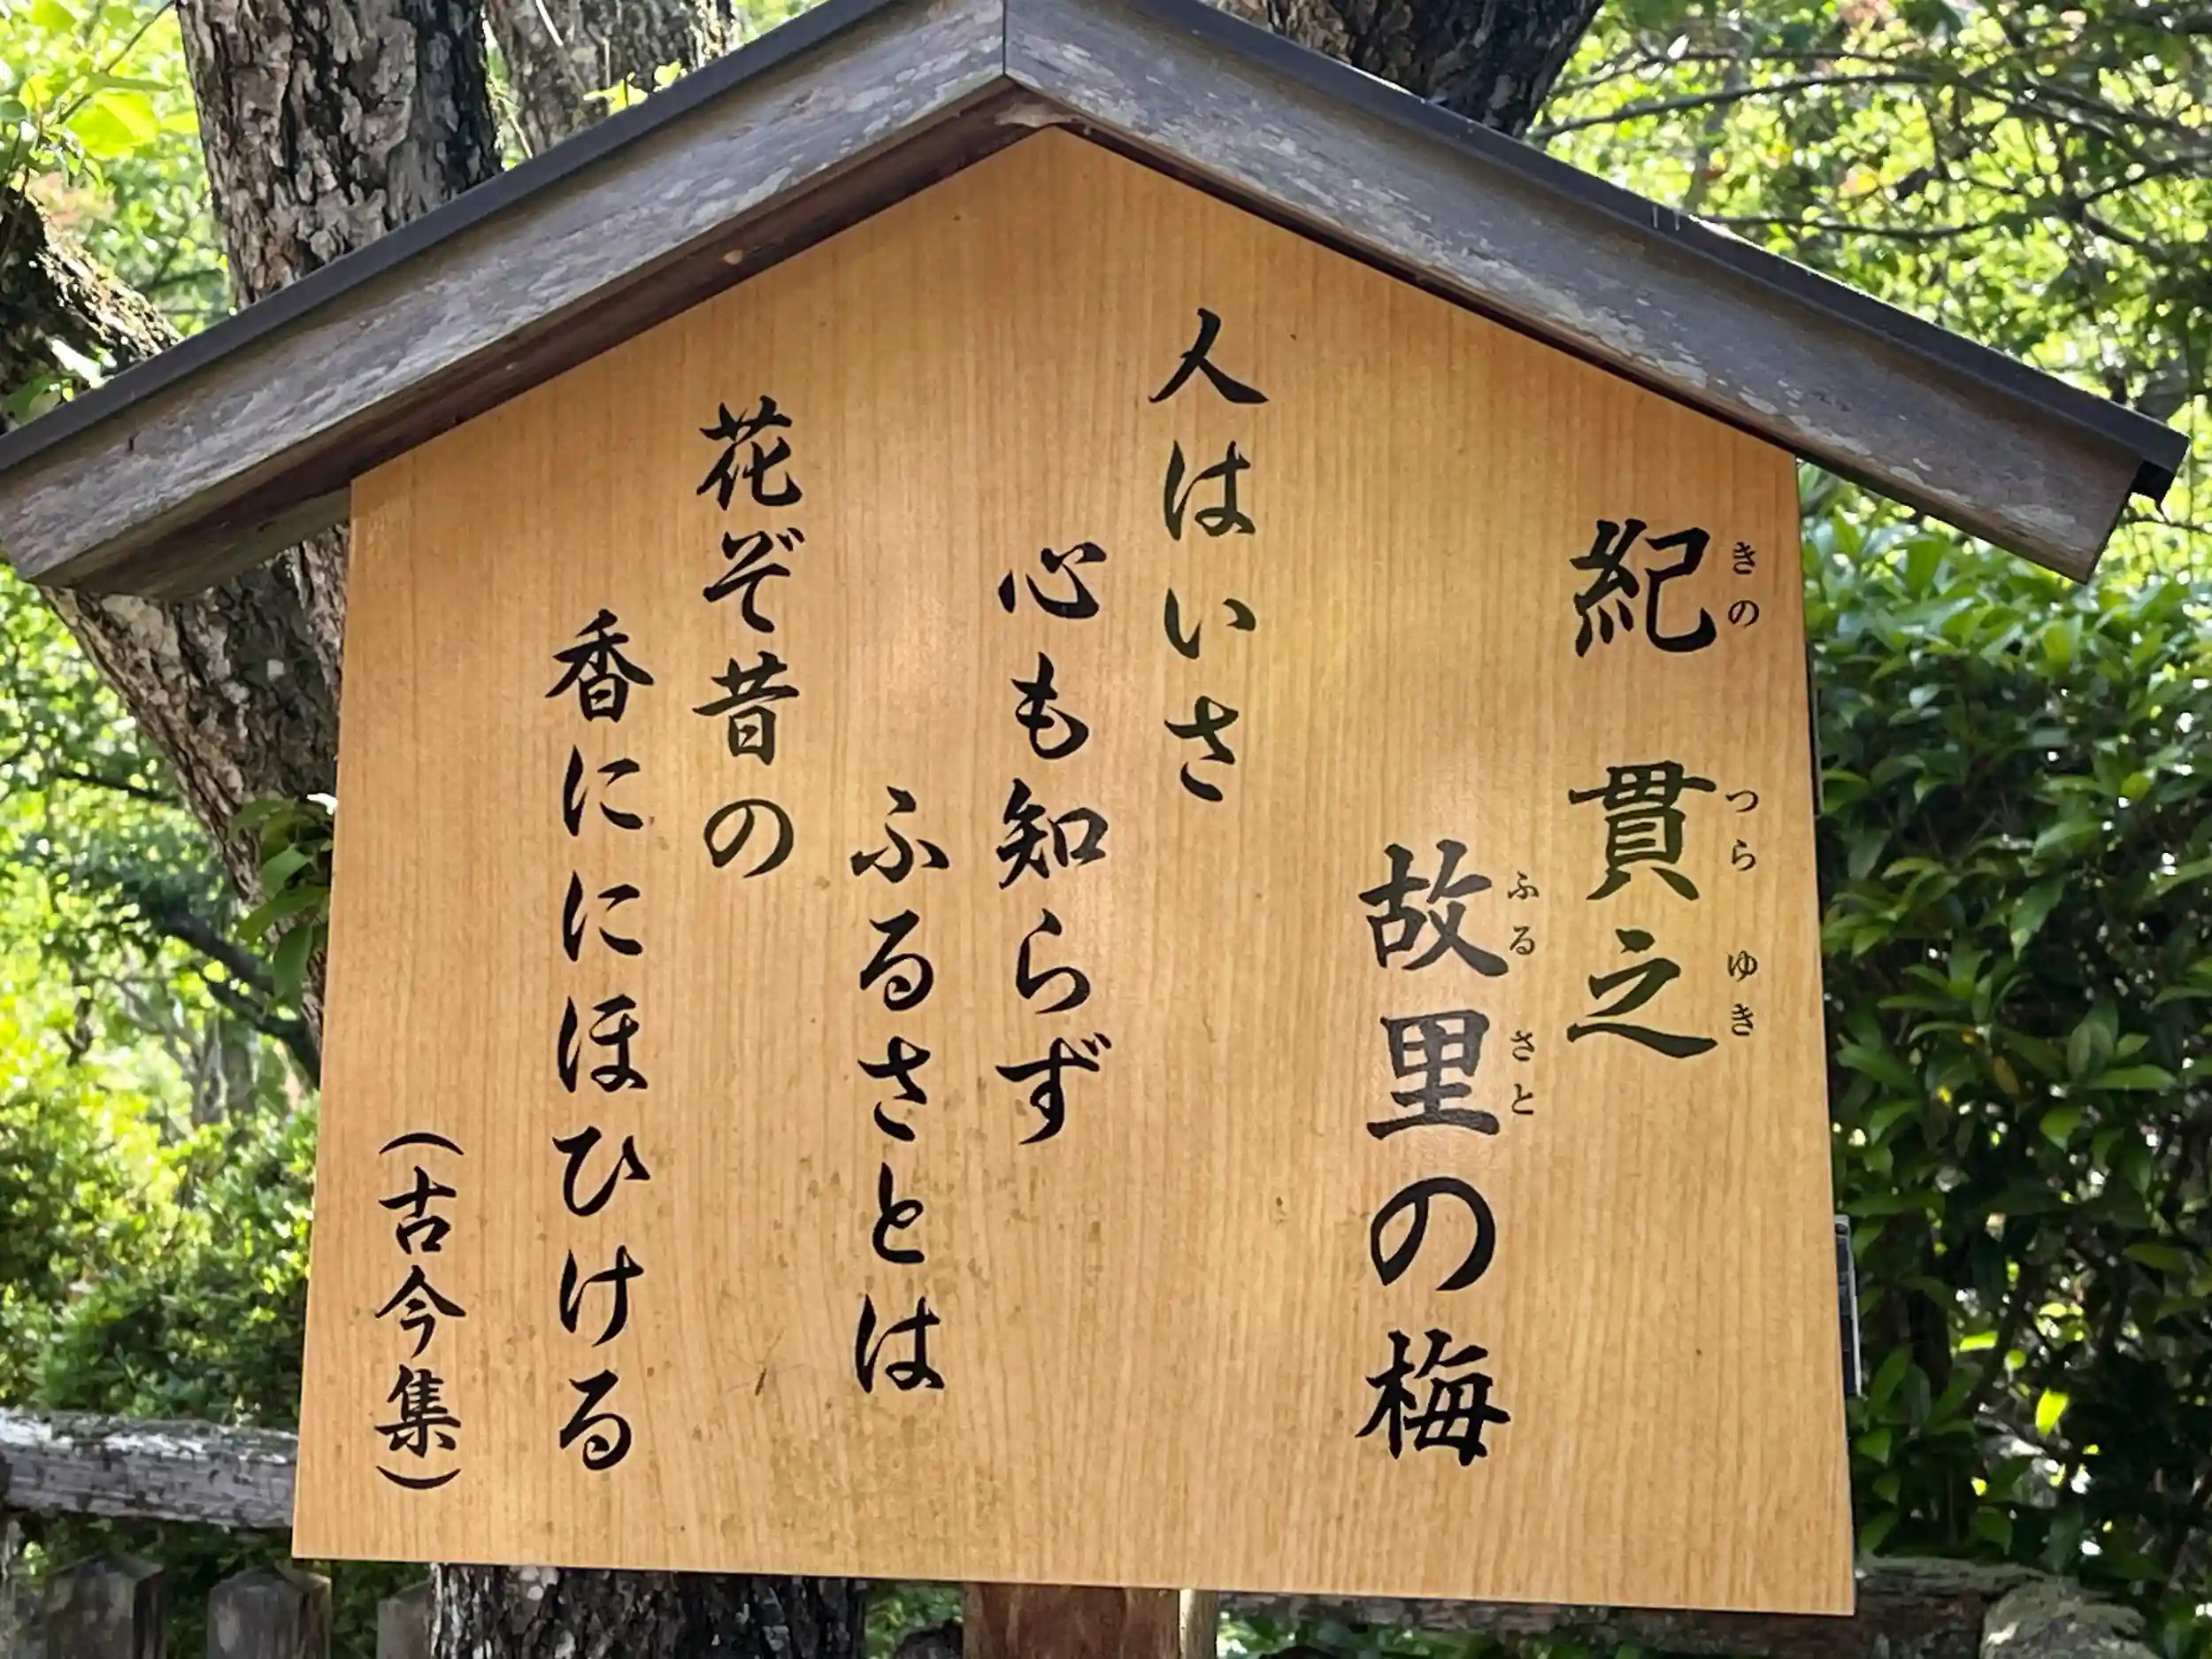 紀貫之
きの つらゆき
故里の梅
ふるさと
人はいさ
心も知らず
ふるさとは
花ぞ昔の
香ににほひける
（古今集）